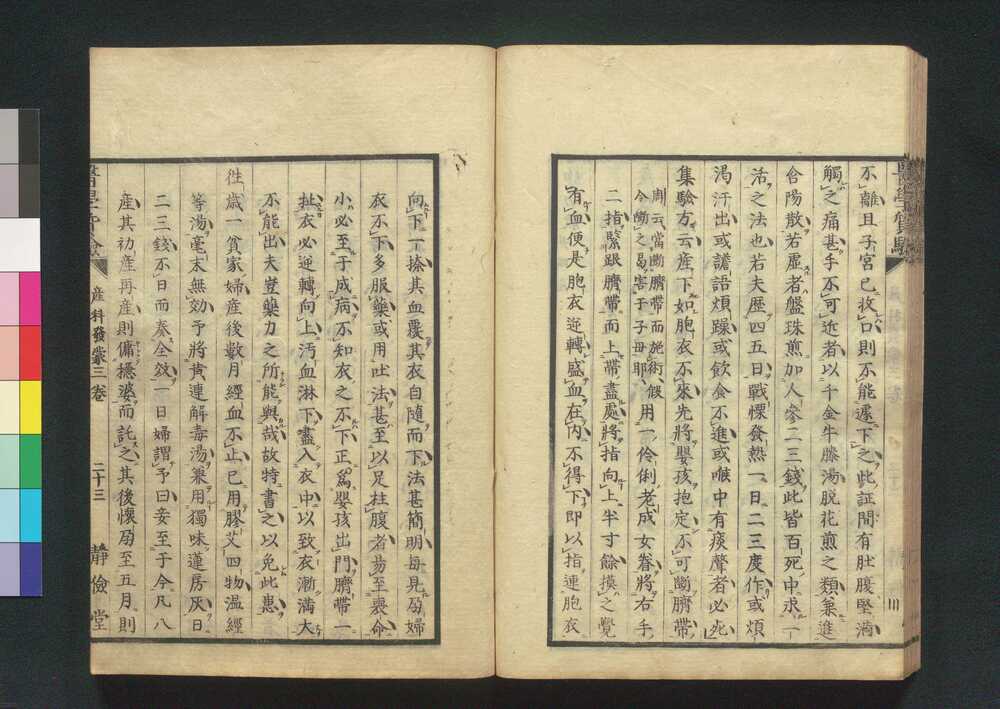 不離且子宮已收口則不能遽下之此証間有肚腹堅満
觸之痛甚手不可近者以千金牛膝湯脱花煎之類兼進
合陽散若虚者盤珠煎加人參二三錢此皆百死中求一
活之法也若夫歴四五日戰慄發熱一日二三度作或煩
渇汗出或譫語煩躁或飲食不進或喉中有痰聲者必死
集驗方云産下如胞衣不來先將嬰孩抱定不可斷臍帶
周云當斷臍帶而施術假
令斷之曷害于子母耶
用一伶俐老成女眷將右手
二指緊跟臍帶而上帶盡處將指向上半寸餘摸之覺
有血便是胞衣逆轉盛血在内不得下即以指連胞衣
向下一捺其血覆其衣自隨而下法甚簡明毎見孕婦
衣不下多服藥或用吐法甚至以足柱腹者昜至喪命
小必至于成病不知衣之不下正爲嬰孩出門臍帶一
扯衣必逆轉向上汚血淋下盡入衣中以致衣漸満大
不能出夫豈藥力之所能與哉故特書之以免此患
徃歳一貧家婦産後數月經血不止已用膠艾四物温經
等湯毫末無効予將黄連解毒湯兼用獨味蓮房灰日
二三錢不日而奏全效一日婦謂予曰妾至于今凡八
産其初産再産則傭穩婆而託之其後懷孕至五月則
産科發蒙三卷
二十三
靜儉堂